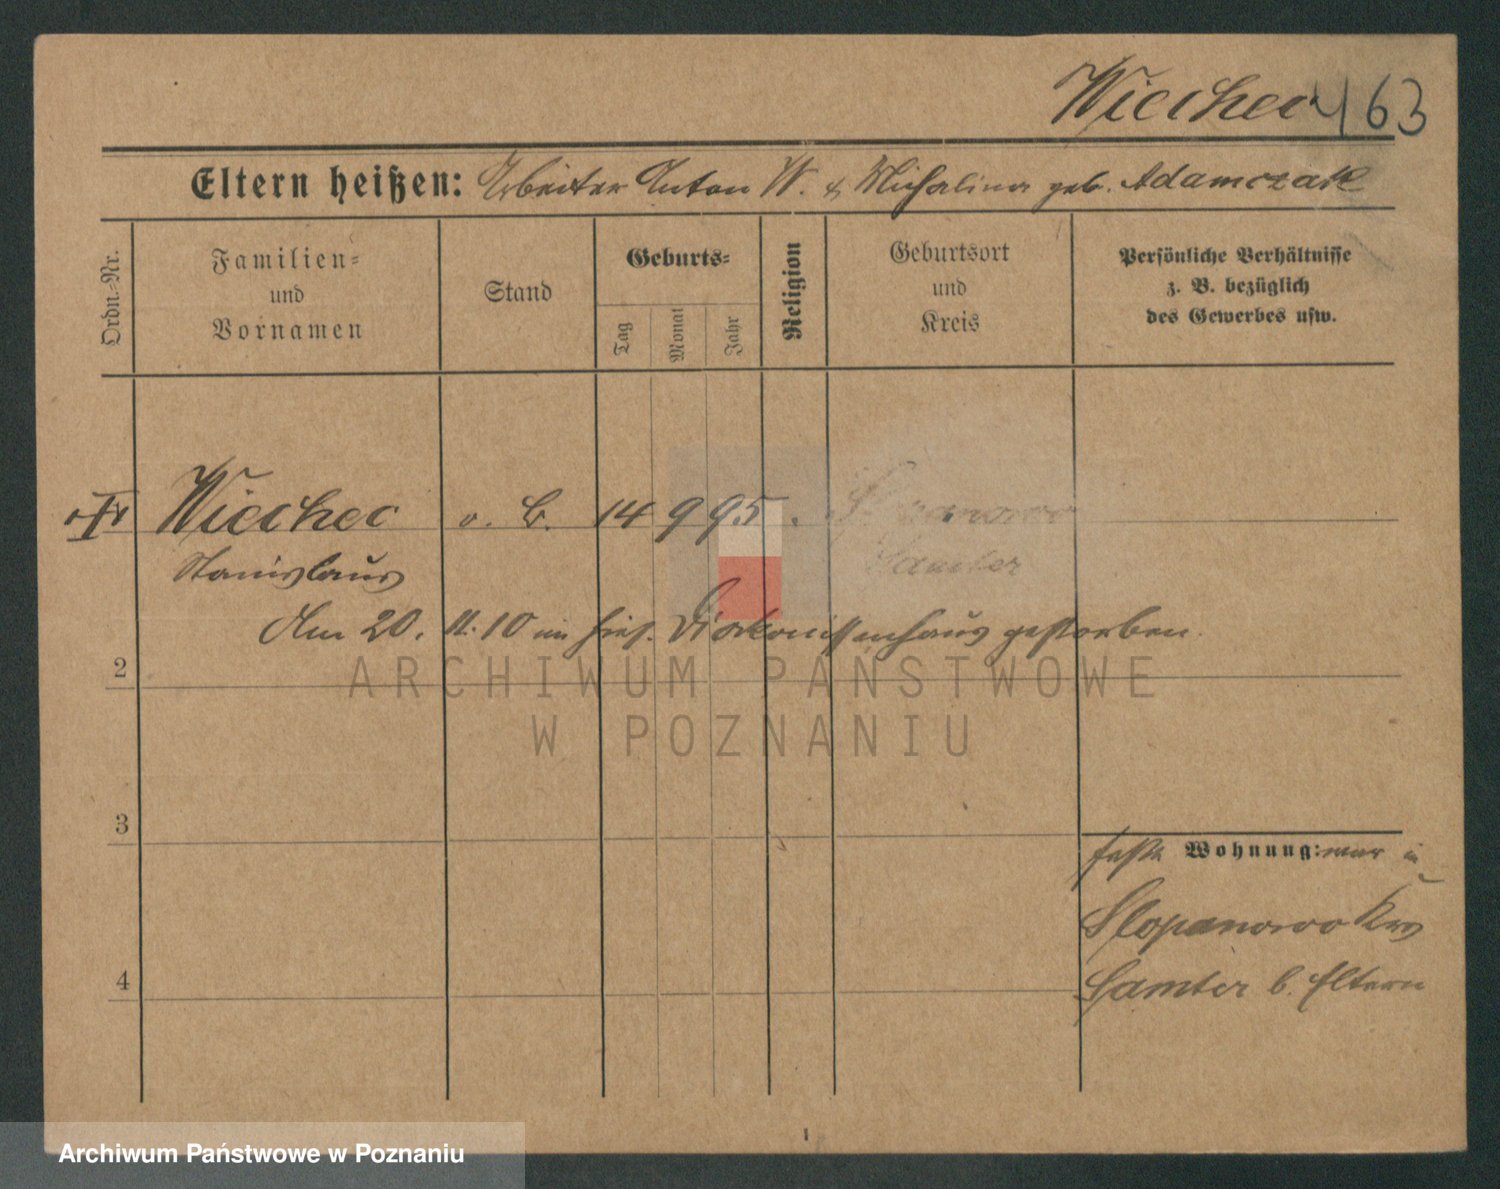 Wiechec 463
Eltern heißen: Arbeiter Anton W. & Michalina geb. Adamczak
Ordn.-Nr.
Familien-
und
Vornamen
Stand
Geburts-
Tag
Monat
Jahr
Religion
Geburtsort
und
Kreis
Persönliche Verhältnisse
z. B. bezüglich
des Gewerbes usw.
Wiechec o. B. 14 9 95
Stanislaus Samter
Am 20. 11. 10 im hies. Diakonissenhaus gestorben.
2
ARCHIWUM PAŃSTWOWE
W POZNANIU
3
feste Wohnung: war in
Slopanowo Krs
4
Samter b. Eltern
Archiwum Państwowe w Poznaniu